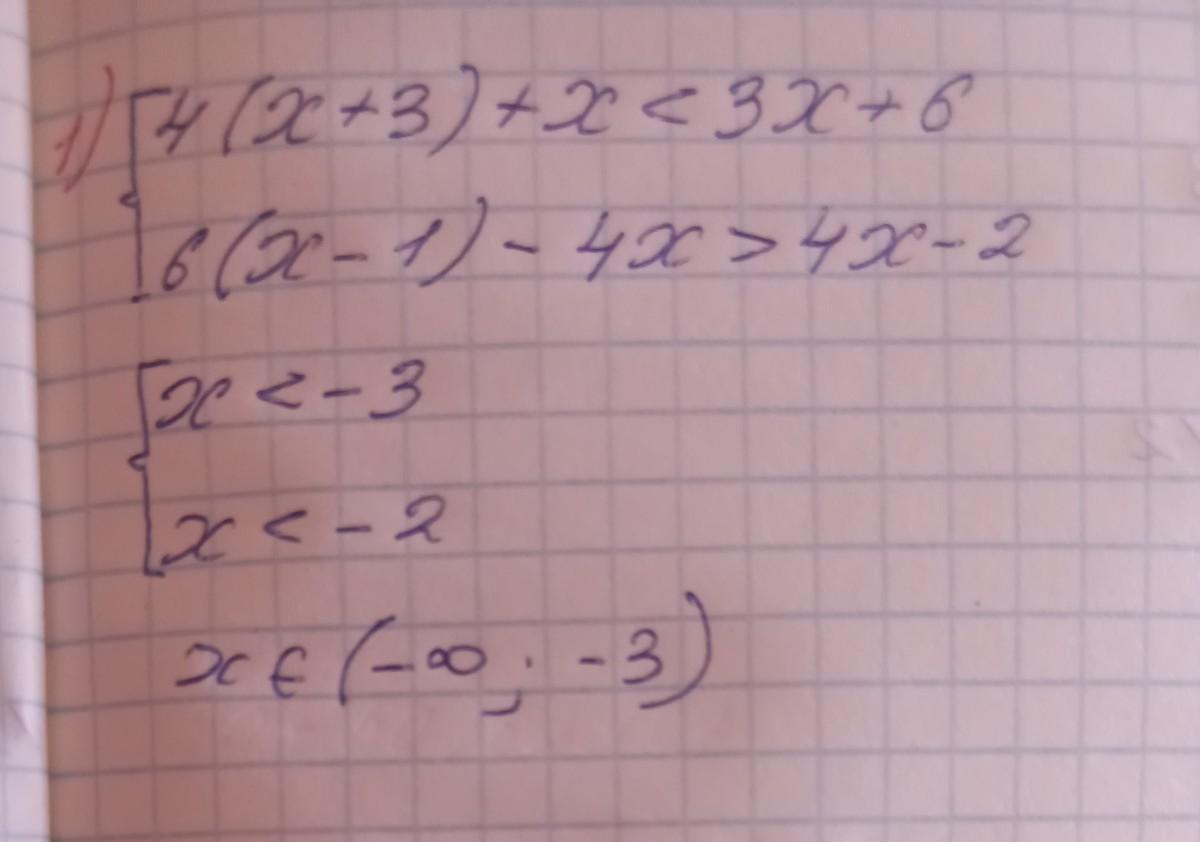 1) { 4(x+3)+x < 3x+6
6(x-1) - 4x > 4x-2
{ x < -3
x < -2
x ∈ (-∞; -3)